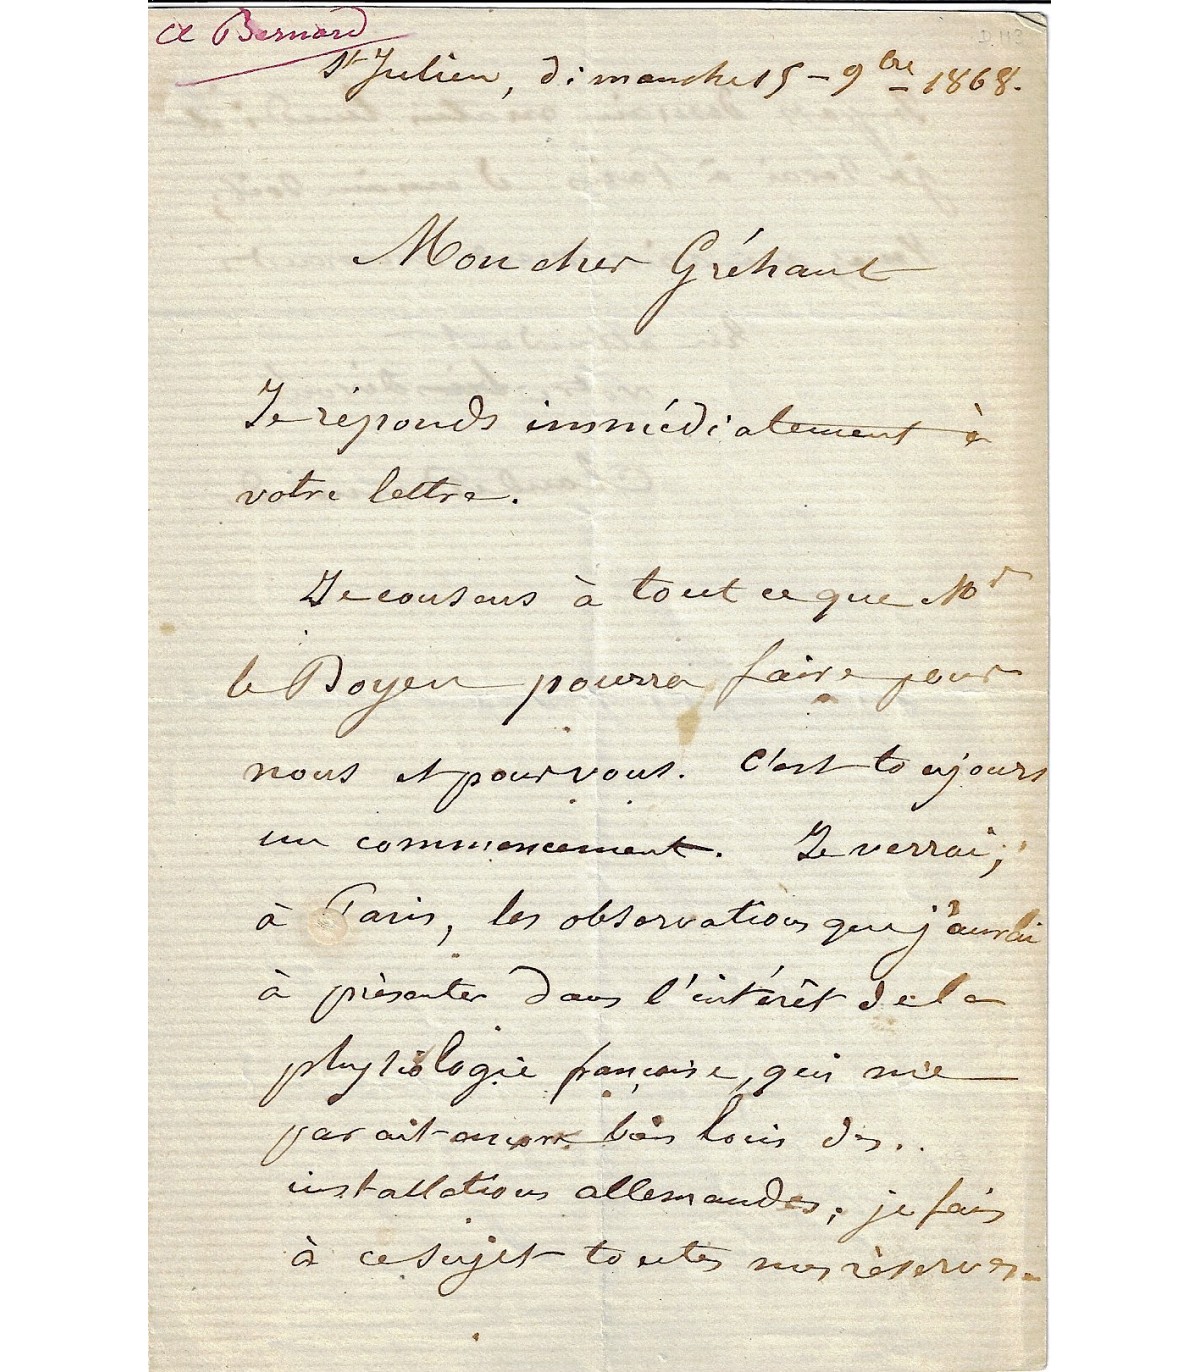 Cl Bernard
D.113
St Julien, dimanche 15 - 9bre 1868.
Mon cher Gréhant
Je réponds immédiatement à
votre lettre.
Je consens à tout ce que Mr
le Doyen pourra faire pour
nous et pour vous. C'est toujours
un commencement. Je verrai,
à Paris, les observations que j'aurai
à présenter dans l'intérêt de la
physiologie française, qui me
parait encore bien loin des..
installations allemandes; je fais
à ce sujet toutes mes réserves.